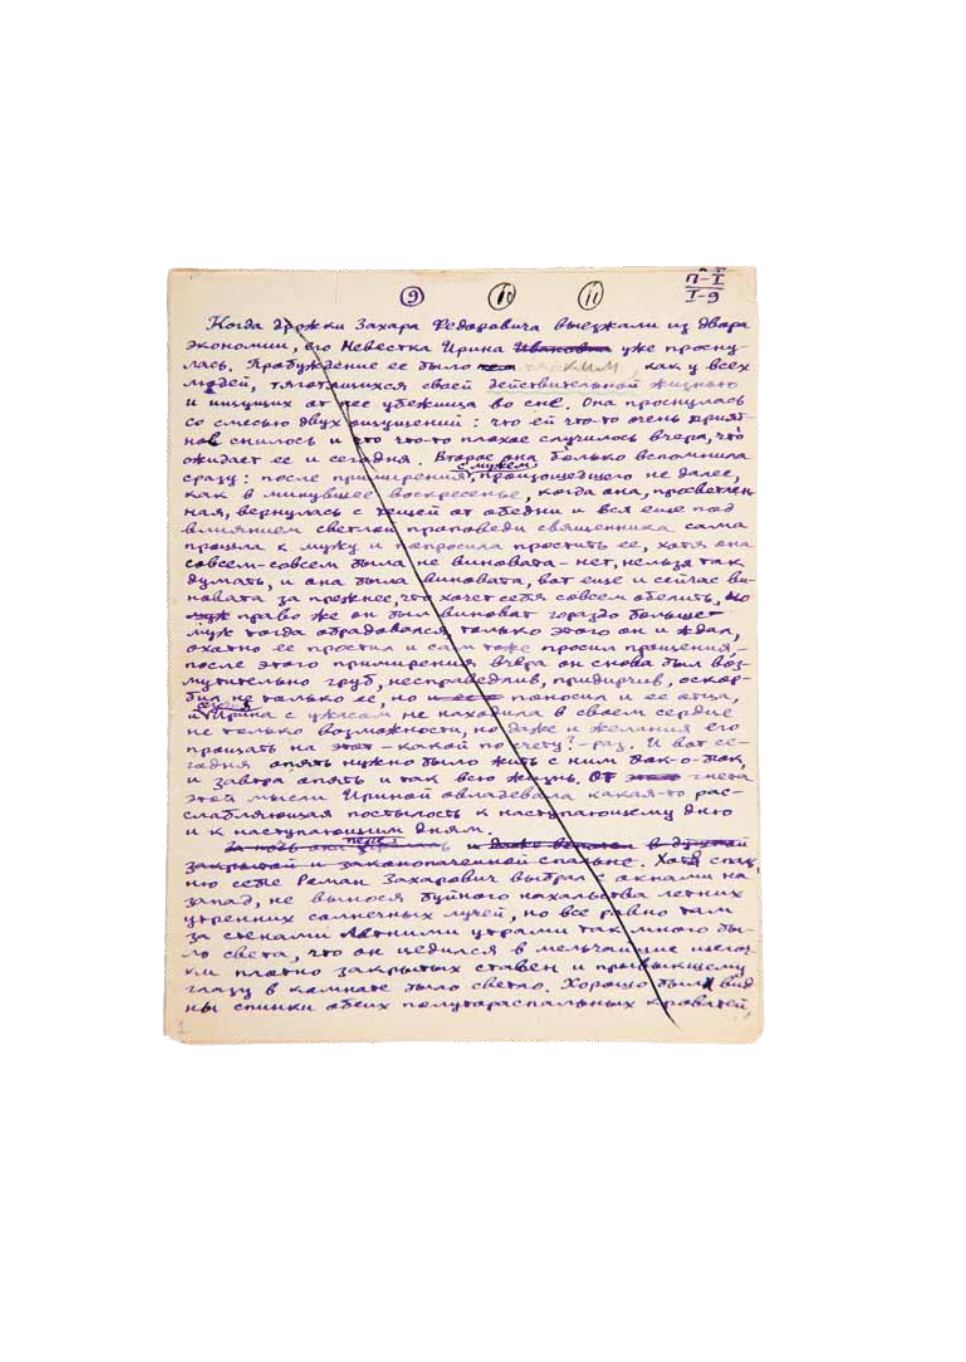 9 10 11 П-I
I-9
Когда дрожки Захара Федоровича выезжали из двора
экономии, его невестка Ирина Ивановна уже просну-
лась. Пробуждение ее было тяжким, как у всех
людей, тяготящихся своей действительной жизнью
и ищущих от нее убежища во сне. Она проснулась
со смесью двух ощущений: что ей что-то очень прият-
ное снилось и что что-то плохое случилось вчера, что
ожидает ее и сегодня. Второе она только вспомнила
с мужем,
сразу: после примирения, происшедшего не далее,
как в минувшее воскресенье, когда она, просветлен-
ная, вернулась с тещей от обедни и вся еще под
влиянием светлой проповеди священника сама
прошла к мужу и попросила простить ее, хотя она
совсем-совсем была не виновата – нет, нельзя так
думать, и она была виновата, вот еще и сейчас ви-
новата за прежнее, что хочет себя совсем обелить, но
муж право же он был виноват гораздо больше –
муж тогда обрадовался, только этого он и ждал,
охотно ее простил и сам тоже просил прощения, –
после этого примирения вчера он снова был воз-
мутительно груб, несправедлив, придирчив, оскор-
бил не только ее, но и поносил и ее отца,
и Ирина с ужасом не находила в своем сердце
не только возможности, но даже и желания его
прощать на этот – какой по счету? – раз. И вот се-
годня опять нужно было жить с ним бок-о-бок,
и завтра опять и так всю жизнь. От гнета
этой мысли Ириной овладевала какая-то рас-
слабляющая постылость к наступающему дню
и к наступающим дням.
За ночь она и даже в душной
закрытой и законопаченной спальне. Хотя спаль-
ню себе Роман Захарович выбрал с окнами на
запад, не вынося буйного нахальства летних
утренних солнечных лучей, но все равно там
за стенами летними утрами так много бы-
ло света, что он цедился в мельчайшие щелоч-
ки плотно закрытых ставен и привыкшему
глазу в комнате было светло. Хорошо были вид-
ны спинки обеих полутораспальных кроватей,
1